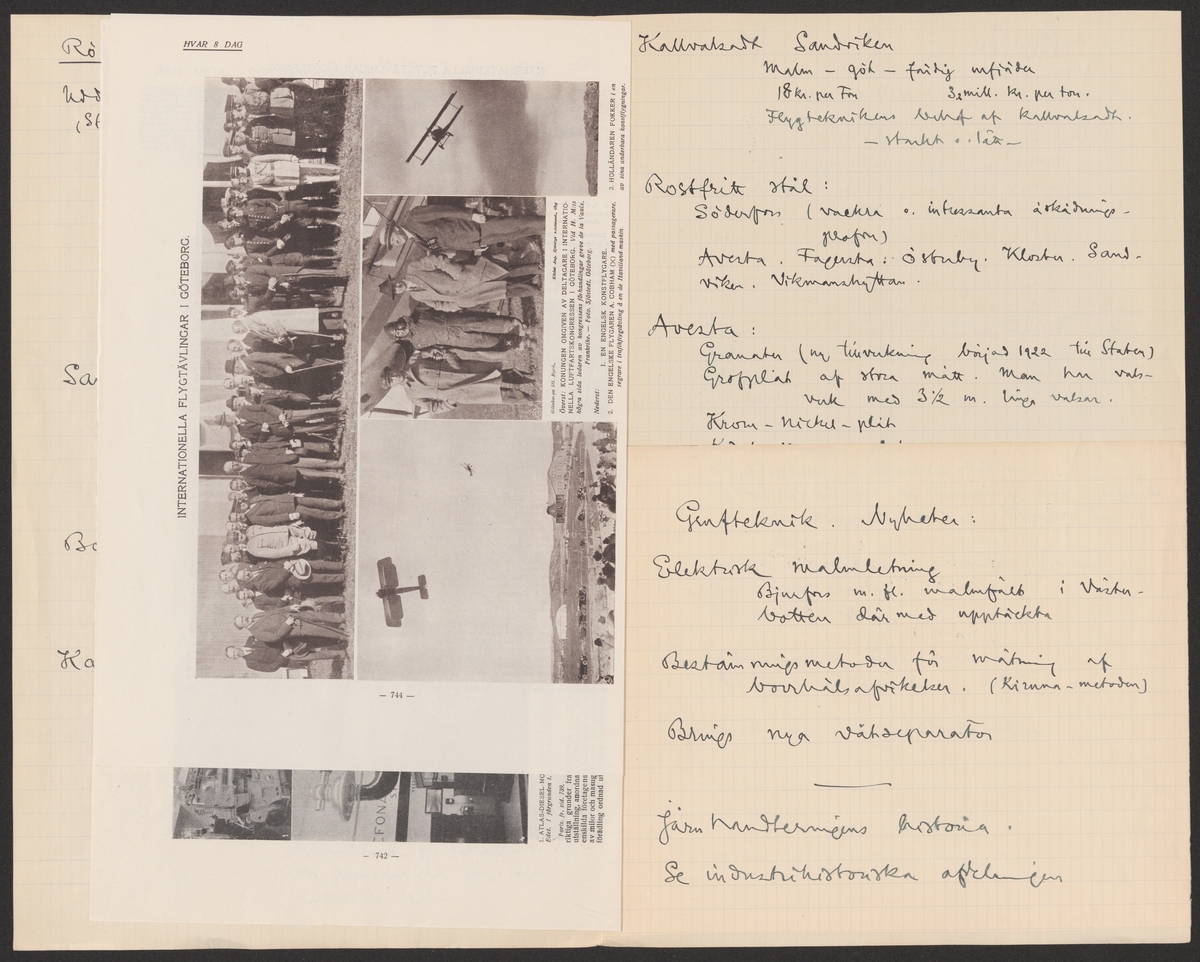 Rö
Udd
(St
Sa
Ka
HVAR 8 DAG
INTERNATIONELLA FLYGTÄVLINGAR I GÖTEBORG.
Överst: KONUNGEN OMGIVEN AV DELTAGARE I INTERNATIO-
NELLA LUFTFARTSKONGRESSEN I GÖTEBORG. Vid H. M:ts
högra sida ledaren av kongressens förhandlingar greve de la Vaulx,
Frankrike. — Foto. Sjöstedt, Göteborg.
Nederst: 1. EN ENGELSK KONSTFLYGARE.
2. DEN ENGELSKE FLYGAREN A. COBHAM (X) med passagerare,
segrare i trafikflygtävling å en de Havilland-maskin.
3. HOLLÄNDAREN FOKKER i en
av sina underbara konstflygningar.
— 744 —
EFONA
1. ATLAS-DIESEL-MO
Edet. I förgrunden t.
Forts. fr. sid. 739.
riktiga grunder fra
utställning, anordna
enskilda företagens
av milor och masug
förädling ordnad ut
— 742 —
Kallvalsadt Sandviken
Malm — göt — färdig urfjäder
18 kr. per Ton 3½ mill. kr. per ton.
Flygteknikens behof af kallvalsadt.
— starkt o. lätt —
Rostfritt stål:
Söderfors (vackra o. intressanta åskådnings-
Avesta. Fagersta. Österby. Kloster. Sand-
viken. Vikmanshyttan.
Avesta:
Granater (ny tillverkning börjad 1922 till Staten)
Grofplåt af stora mått. Man har vals-
verk med 3½ m. långa valsar.
Krom-nickel-plåt
Grufteknik. Nyheter:
Elektrisk malmletning
Bjurfors m. fl. malmfält i Väster-
botten därmed upptäckta
Bestämningsmetoder för mätning af
borrhålsafvikelser. (Kiruna-metoden)
Brings nya våtseparator
Järnhandteringens historia.
Se industrihistoriska afdelningen